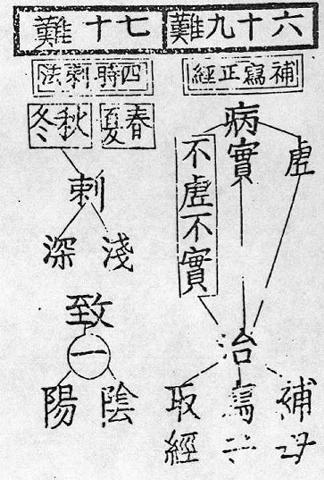 六十九難
補寫正經
虛
病實
不虛不實
治
補母
寫
取經
七十難
四時刺法
春夏
秋冬
刺
淺
深
致
一
陰
陽